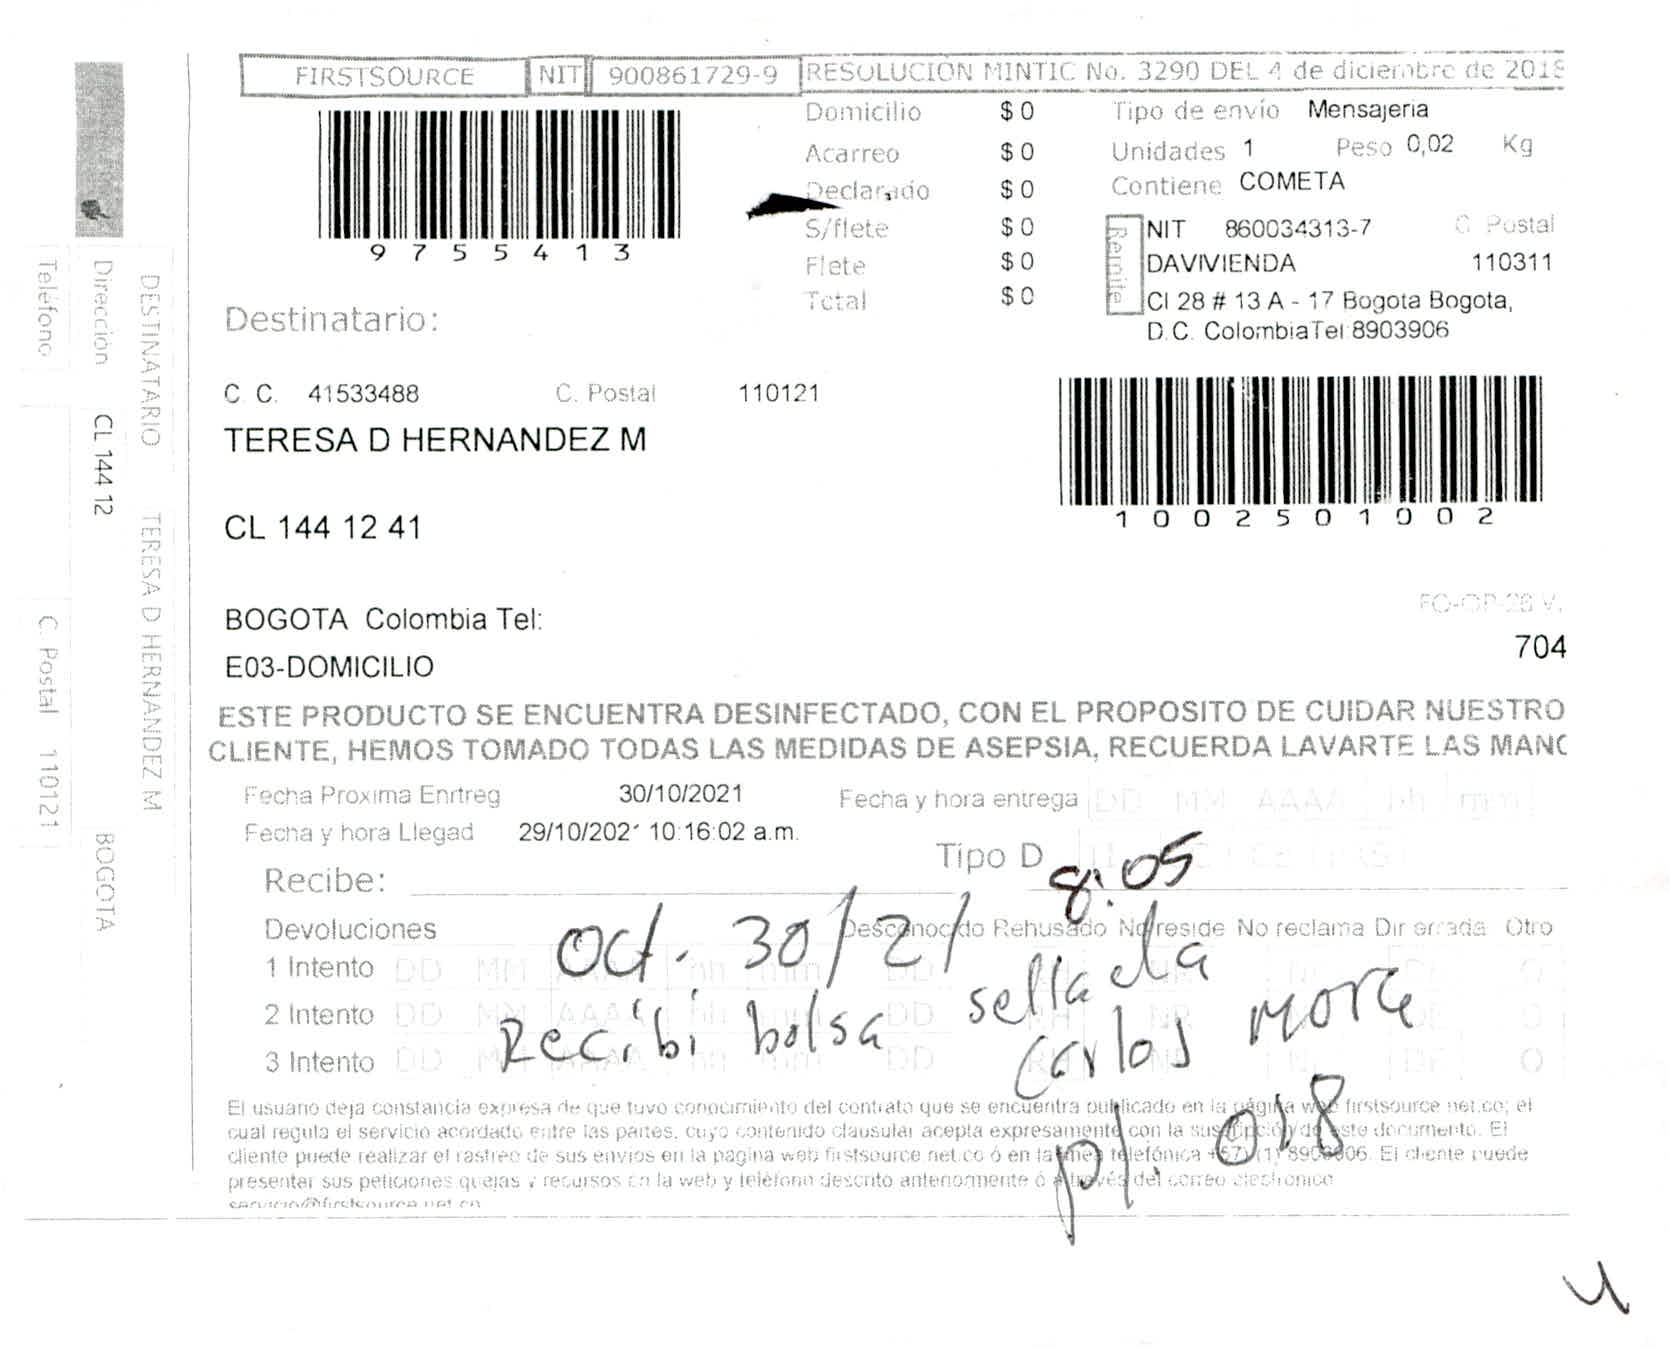 FIRSTSOURCE NIT 900861729-9 RESOLUCIÓN MINTIC No. 3290 DEL 4 de diciembre de 2018
9755413
Domicilio $ 0
Acarreo $ 0
Declarado $ 0
S/flete $ 0
Flete $ 0
Total $ 0
Tipo de envío Mensajeria
Unidades 1 Peso 0,02 Kg
Contiene COMETA
Remite
NIT 860034313-7 C. Postal
DAVIVIENDA 110311
Cl 28 # 13 A - 17 Bogota Bogota,
D.C. ColombiaTel:8903906
1002501002
Destinatario:
C. C. 41533488 C. Postal 110121
TERESA D HERNANDEZ M
CL 144 12 41
BOGOTA Colombia Tel:
E03-DOMICILIO
FO-OP-28 V.
704
ESTE PRODUCTO SE ENCUENTRA DESINFECTADO, CON EL PROPOSITO DE CUIDAR NUESTRO
CLIENTE, HEMOS TOMADO TODAS LAS MEDIDAS DE ASEPSIA, RECUERDA LAVARTE LAS MANO
Fecha Proxima Enrtreg 30/10/2021 Fecha y hora entrega DD MM AAAA hh mm
Fecha y hora Llegad 29/10/2021 10:16:02 a.m.
Tipo D
8:05
Recibe:
Devoluciones Desconocido Rehusado No reside No reclama Dir errada Otro
1 Intento DD MM AAAA hh mm DD
O
2 Intento DD MM AAAA hh mm DD RH NR DE O
3 Intento DD MM AAAA hh mm DD RH NR DE O
Oct. 30/21
Recibi bolsa sellada
Carlos Mora
pl. 018
El usuario deja constancia expresa de que tuvo conocimiento del contrato que se encuentra publicado en la página web firstsource.net.co; el
cual regula el servicio acordado entre las partes, cuyo contenido clausular acepta expresamente con la suscripción de este documento. El
cliente puede realizar el rastreo de sus envios en la pagina web firstsource.net.co ó en la línea telefónica +57) (1) 8903906. El cliente puede
presentar sus peticiones quejas y recursos en la web y teléfono descrito anteriormente ó a través del correo electronico
servicio@firstsource.net.co
DESTINATARIO TERESA D HERNANDEZ M
Dirección CL 144 12 BOGOTA
Teléfono C. Postal 110121